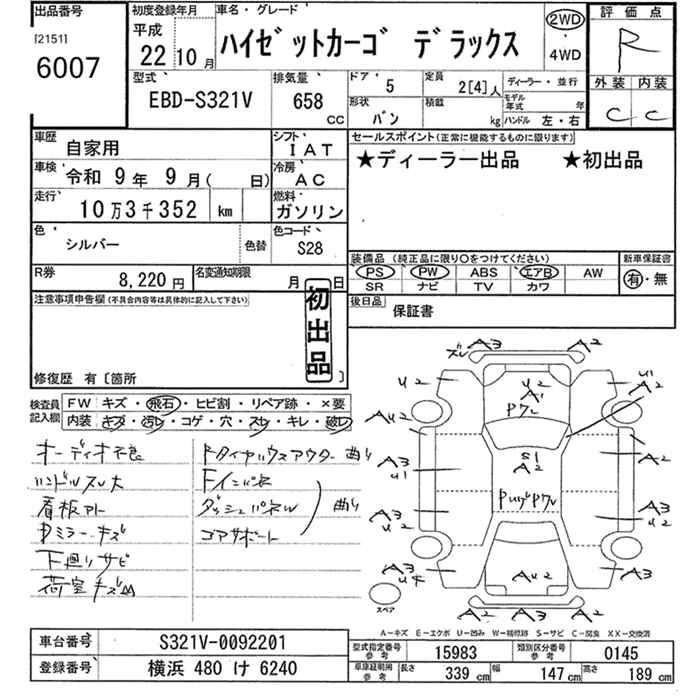 出品番号
[2151]
6007
初度登録年月
平成 22年 10月
車名・グレード
ハイゼットカーゴ デラックス
2WD
・
4WD
評価点
R
外装 内装
C C
型式
EBD-S321V
排気量
658 CC
ドア 5
定員 2[4]人
ディーラー・並行
形状 バン
積載 kg
モデル年式 年
ハンドル 左・右
車歴 自家用
シフト IAT
セールスポイント(正常に機能するものに限ります)
★ディーラー出品 ★初出品
車検 令和 9年 9月( 日)
冷房 AC
走行 10万3千352 km
燃料 ガソリン
色 シルバー 色替
色コード S28
装備品 (純正品に限り○をつけてください)
新車保証書
PS PW ABS エアB AW
SR ナビ TV カワ
有・無
R券 8,220円
名変通知期限 月 日
後日品 保証書
注意事項申告欄(不具合内容等は具体的に記入して下さい)
初出品
修復歴 有〔箇所 〕
検査員記入欄
FW キズ・飛石・ヒビ割・リペア跡・×要
内装 キズ・汚レ・コゲ・穴・スレ・キレ・破レ
オーディオ不良
ハンドルスレ大
看板アト
Dミラーキズ
下廻りサビ
荷室キズ凹
Fタイヤハウスアウター 曲り
Fインパネ
ダッシュパネル 曲り
コアサポート
A3 A2
ズレ
U2 U2 U1
A1 A2
Pアレ
AU2
S1
A2 A2
A3
U1
PUゲPアレ
A3 A3
U2 U2
A3 AU2 A2
U4
スペア
A3 A3 A2
A-キズ E-エクボ U-凹み W-補修跡 S-サビ C-腐食 XX-交換済
車台番号 S321V-0092201
型式指定番号 参考 15983
類別区分番号 参考 0145
登録番号 横浜 480 け 6240
車庫証明用 参考
長さ 339 cm 幅 147 cm 高さ 189 cm